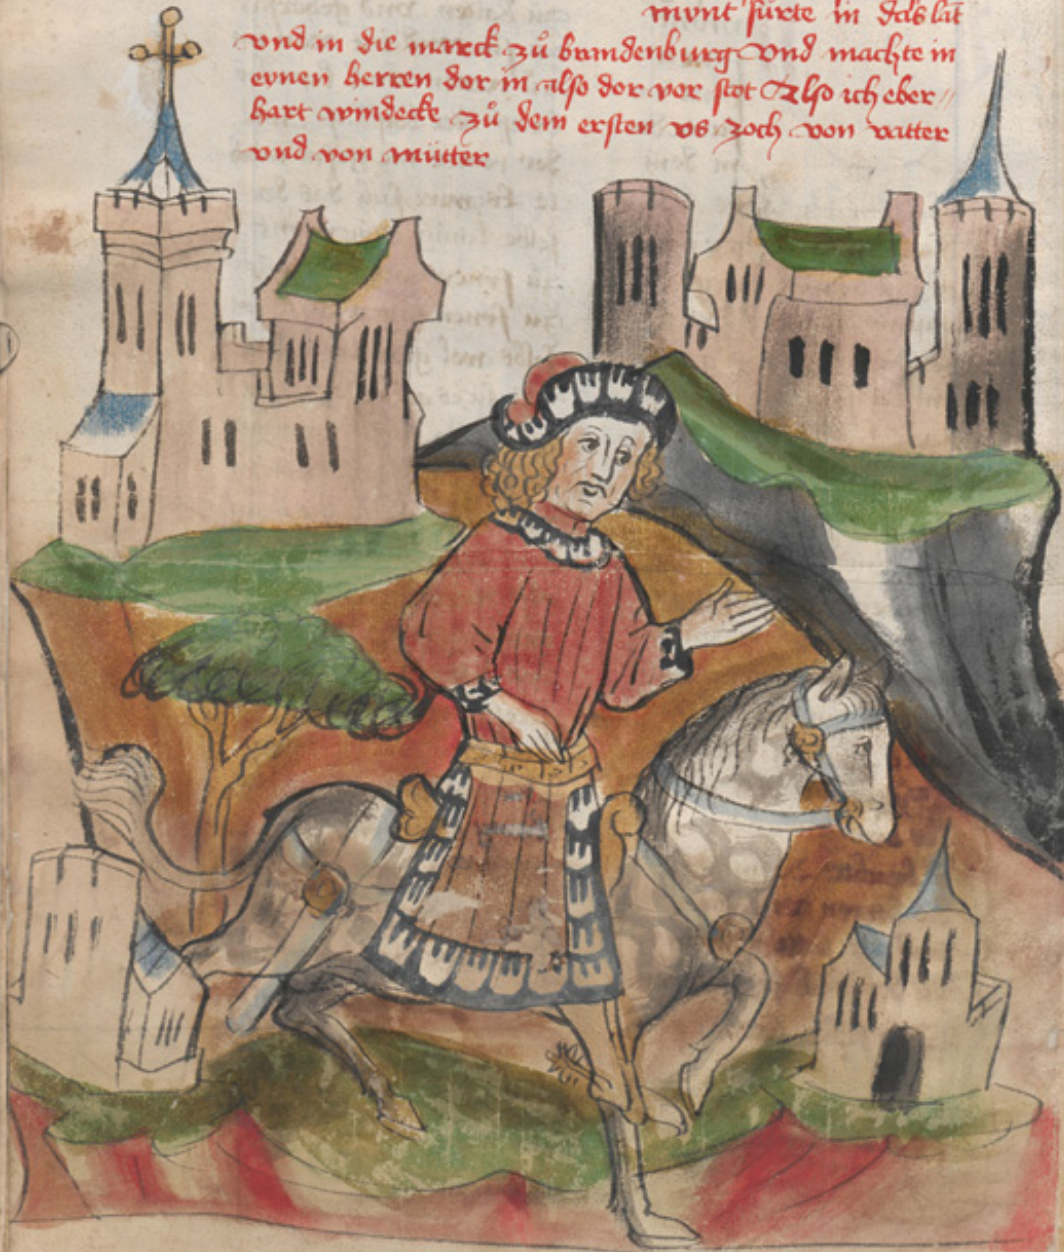 mynt fürte in das lāt
vnd in die marck zů brandenburg vnd machte in
eynen herren dor in also dor vor stot Also ich eber〃
hart windecke zů dem ersten vs zoch von vatter
vnd von mütter